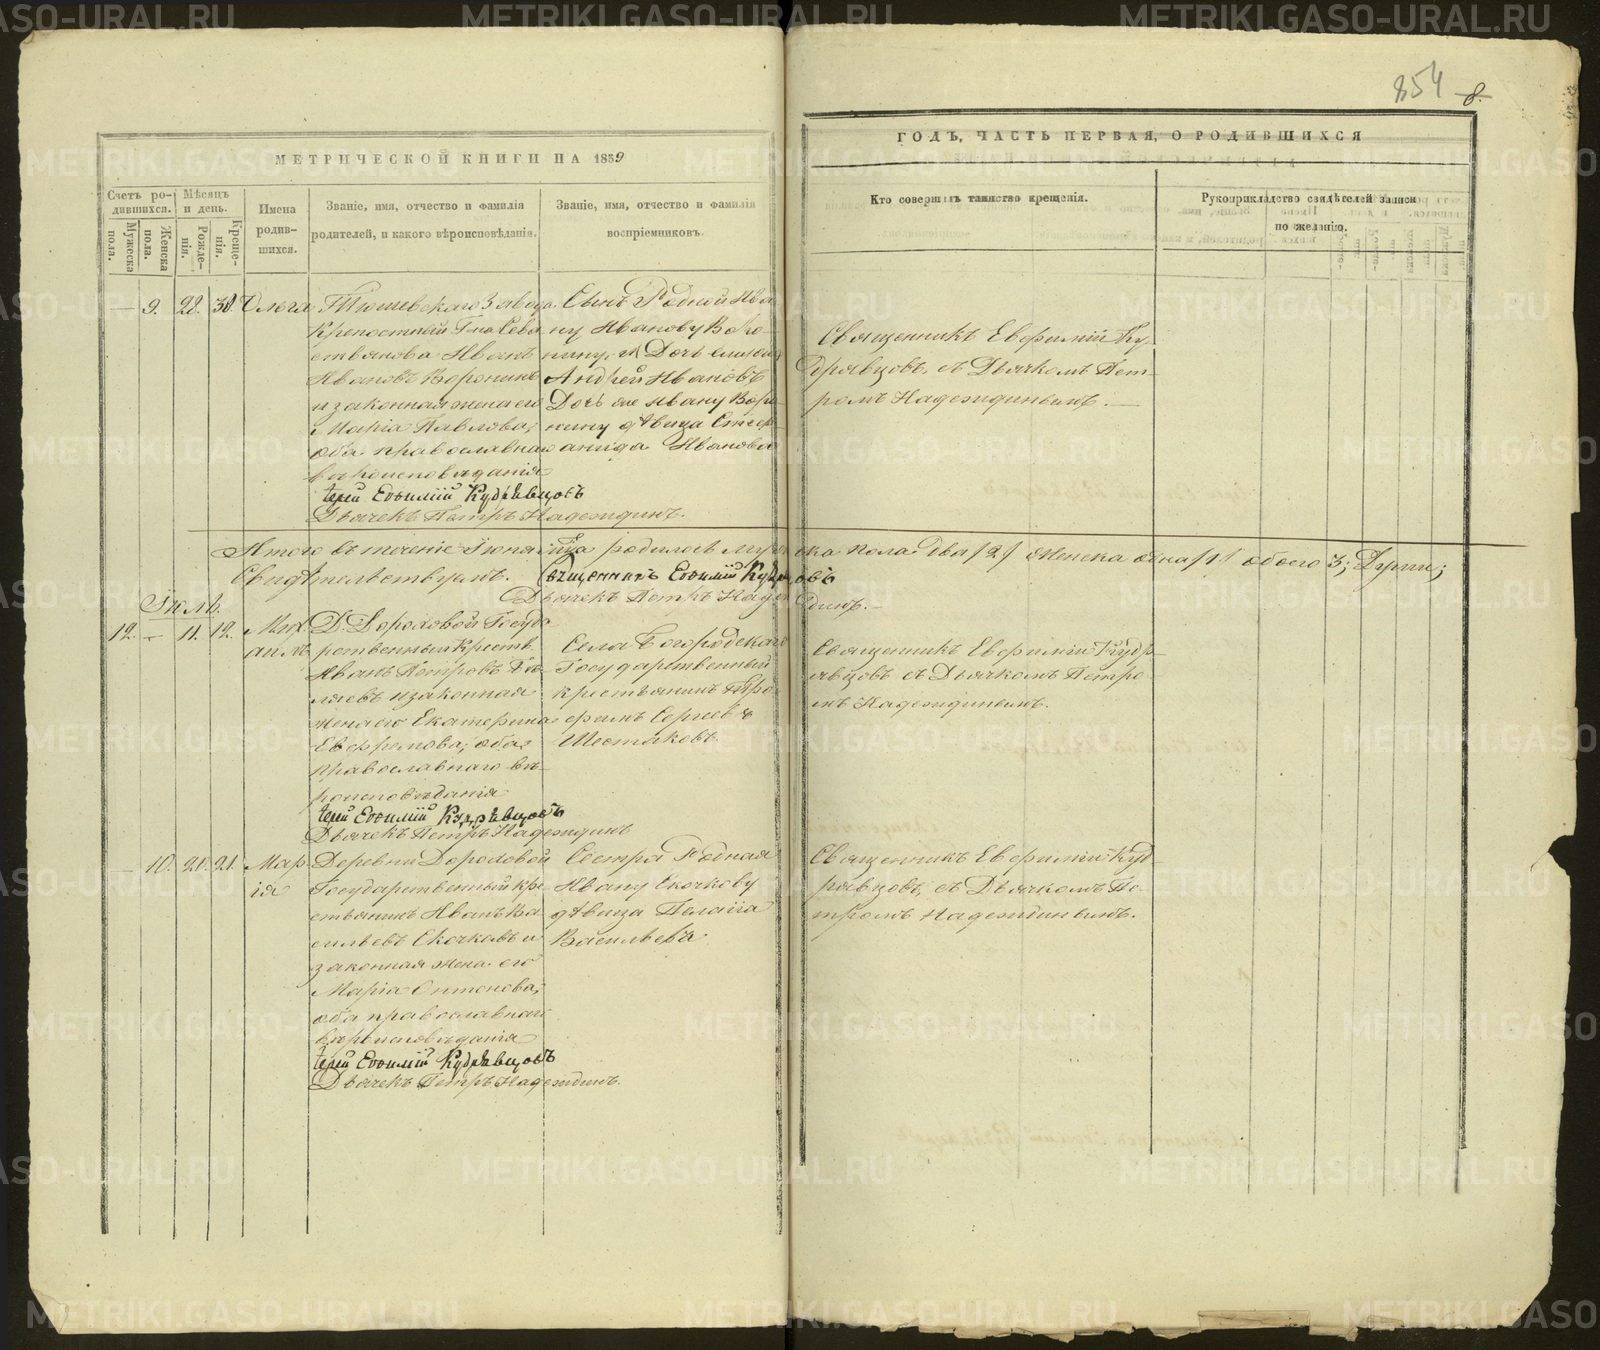 854 8.
МЕТРИЧЕСКОЙ КНИГИ НА 1859
ГОДЪ, ЧАСТЬ ПЕРВАЯ, О РОДИВШИХСЯ
Счетъ родившихся.
Мужеска пола.
Женска пола.
Мѣсяцъ и день.
Рожденія.
Крещенія.
Имена родившихся.
Званіе, имя, отчество и фамилія
родителей, и какого вѣроисповѣданія.
Званіе, имя, отчество и фамилія
воспріемниковъ.
Кто совершилъ таинство крещенія.
Рукоприкладство свидѣтелей записи
по желанію.
— 9. 28. 30. Ольга
Завода
Крѣпостный
Иванъ
Ивановъ Воронинъ
и законная жена его
Марія Павлова,
оба православнаго
вѣроисповѣданія
Іерей Евѳимій Кудрявцовъ
Дьячекъ Петръ Надеждинъ.
Сынъ Родной Ива
ну Иванову Воро
нину,
Андрей Ивановъ
Дочь Ивану Воро
нину дѣвица Степ
анида Иванова
Священникъ Евфимій Ку
дрявцовъ, съ Дьячкомъ Пет
ромъ Надеждинымъ.
Итого въ теченіе Іюня м‑ца родилось мужеска пола два /2/ женска одна /1/ обоего 3;
Свидѣтельствуемъ. Священникъ Евѳимій Кудрявцовъ
Дьячекъ Петръ Надеждинъ.
Іюль.
12. – 11. 12. Мих
аилъ
Д. Дороховой Госуда
рственный Крестья
Иванъ Петровъ
и законная
жена его Екатерина
Евфремова, оба
православнаго вѣ
роисповѣданія
Іерей Евѳимій Кудрявцовъ
Дьячекъ Петръ Надеждинъ
Села Богородскаго
Государственный
крестьянинъ Тро
фимъ Сергѣевъ
Шестаковъ.
Священникъ Евфимій Кудр
явцовъ съ Дьячкомъ Петро
мъ Надеждинымъ.
— 10. 20. 21. Мар
ія
Деревни Дороховой
Государственный кре
стьянинъ Иванъ Ва
сильевъ Скочковъ и
законная жена его
Марія Антонова,
оба православнаго
вѣроисповѣданія
Іерей Евѳимій Кудрявцовъ
Дьячекъ Петръ Надеждинъ.
Сестра Родная
Ивану Скочкову
дѣвица Пелагія
Васильева.
Священникъ Евфимій Куд
рявцовъ, съ Дьячкомъ Пе
тромъ Надеждинымъ.
METRIKI.GASO-URAL.RU